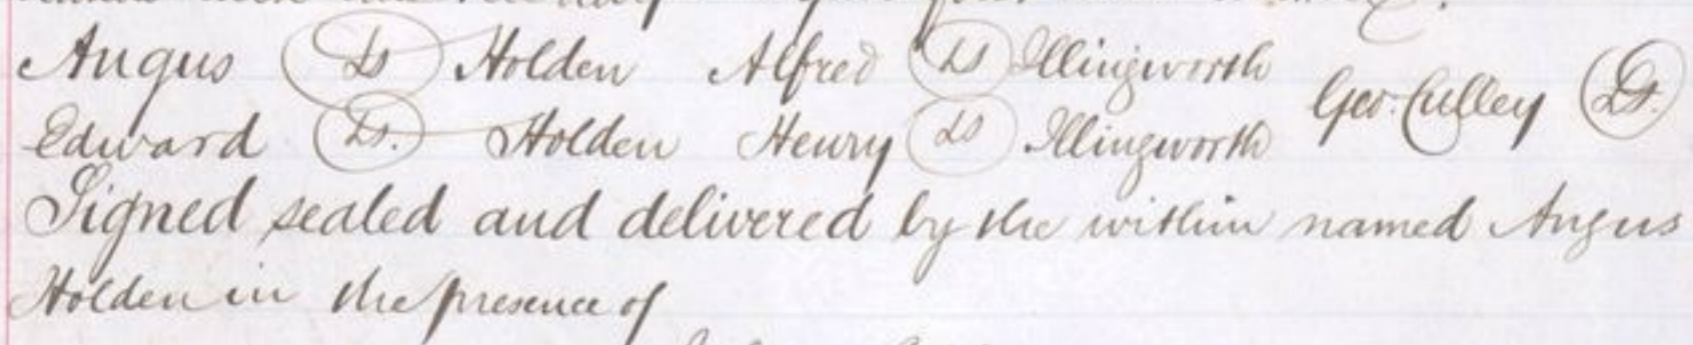 Angus LS Holden Alfred LS Illingworth Geo. Culley LS.
Edward LS. Holden Henry LS Illingworth
Signed sealed and delivered by the within named Angus
Holden in the presence of